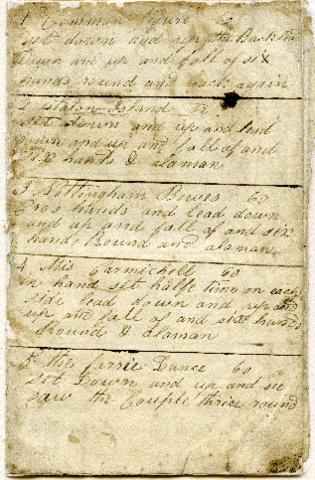 1 Common figure 60
Set down and up the Back
down and up and fall of six
hands round and back again
2 Staton Island
Set down and up and lead
down and up and fall of and
six hands & alaman
3 Nottingham Bower 60
Cros hands and lead down
and up and fall of and six
hands Round and alaman
4 Mis Carmichell 60
in hand set half time on each
side lead down and up and
up and fall of and six hands
Round & alaman
5 the Dance 60
Set Down and up and se
saw the Couple thrice round